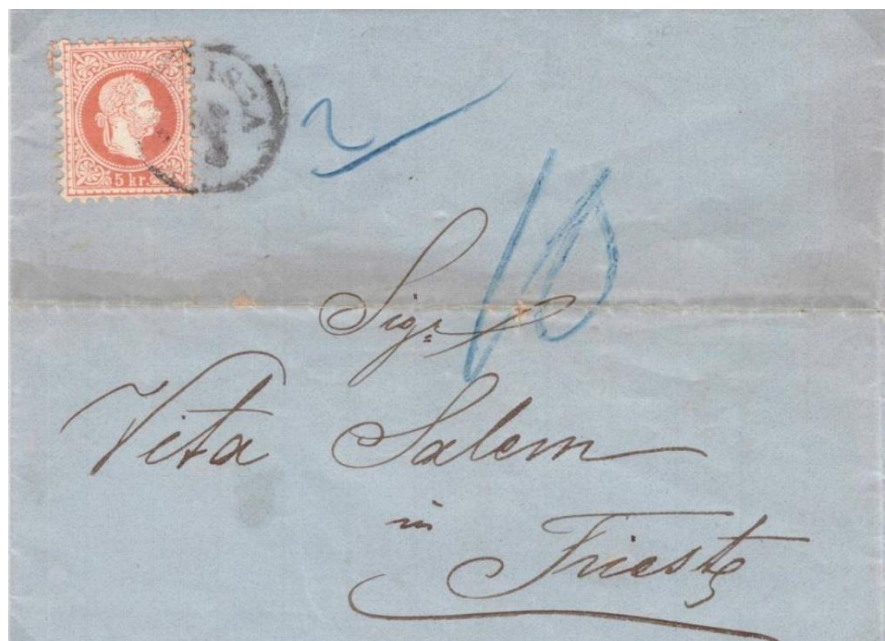 5 kr.
10
Sigr
Vita Salem
in
Trieste